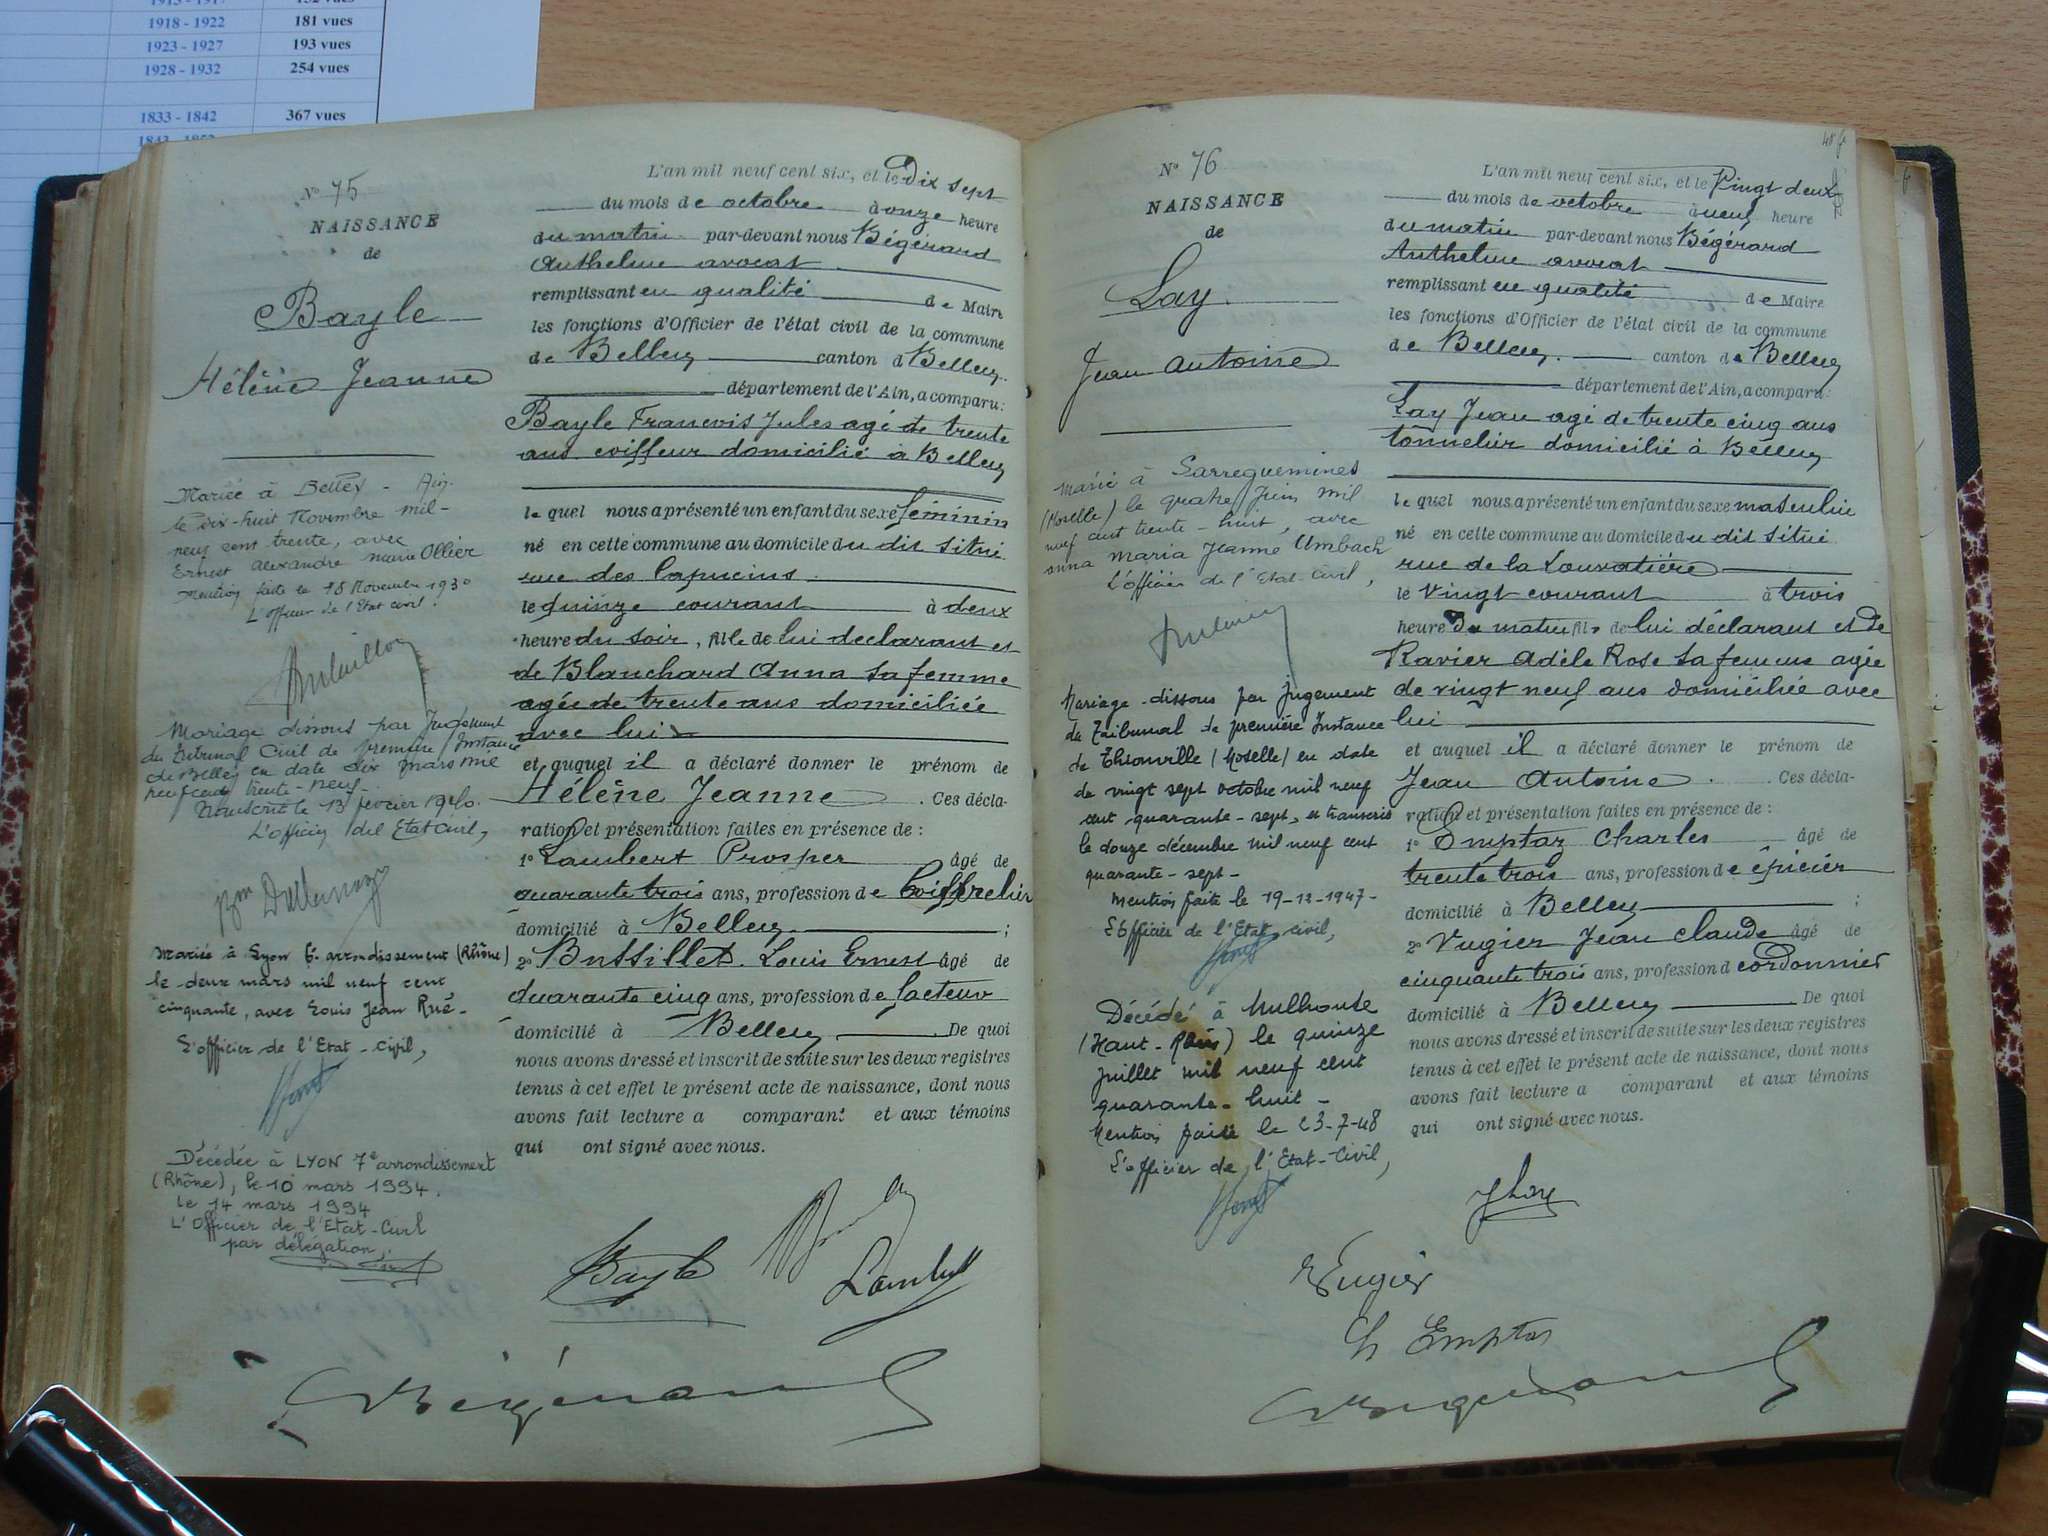 1918 - 1922 181 vues
1923 - 1927 193 vues
1928 - 1932 254 vues
1833 - 1842 367 vues
N° 75
NAISSANCE
de
Bayle
Hélène Jeanne
Mariée à Belley - Ain.
le dix-huit Novembre mil-
neuf cent trente, avec
Ernest Alexandre Marie Ollier
Mention faite le 18 Novembre 1930
L'officier de l'Etat civil.
Mariage dissous par Jugement
du Tribunal Civil de première Instance
de Belley en date dix mars mil
neuf cent trente-neuf.
Transcrit le 13 février 1940.
L'officier de l'Etat Civil,
Mariée à Lyon 6e arrondissement (Rhône)
le deux mars mil neuf cent
cinquante, avec Louis Jean Rué.
L'officier de l'Etat-civil,
Décédée à LYON 7e arrondissement
(Rhône), le 10 mars 1994.
Le 14 mars 1994
L'Officier de l'Etat-Civil
par délégation,
L'an mil neuf cent six, et le Dix sept
du mois de octobre à onze heure
du matin par-devant nous Bégérard
Anthelme avocat
remplissant en qualité de Maire
les fonctions d'Officier de l'état civil de la commune
de Belley canton d Belley
département de l'Ain, a comparu:
Bayle Francois Jules agé de trente
ans coiffeur domicilié à Belley
le quel nous a présenté un enfant du sexe féminin
né en cette commune au domicile du dit situé
rue des Capucins
le quinze courant à deux
heure du soir, fille de lui déclarant et
de Blanchard Anna sa femme
agée de trente ans domiciliée
avec lui
et auquel il a déclaré donner le prénom de
Hélène Jeanne . Ces décla-
ration et présentation faites en présence de :
1° Lambert Prosper âgé de
quarante trois ans, profession de
domicilié à Belley ;
2° Buttillet Louis Ernest âgé de
quarante cinq ans, profession de facteur
domicilié à Belley . De quoi
nous avons dressé et inscrit de suite sur les deux registres
tenus à cet effet le présent acte de naissance, dont nous
avons fait lecture a comparant et aux témoins
qui ont signé avec nous.
Bayle
Lambert
Bégérard
N° 76
NAISSANCE
de
Lay
Jean Antoine
Marié à Sarreguemines
(Moselle) le quatre Juin mil
neuf cent trente-huit, avec
Anna Maria Jeanne Umbach
L'officier de l'Etat-Civil,
Mariage dissous par jugement
du Tribunal de première Instance
de Thionville (Moselle) en date
de vingt sept octobre mil neuf
cent quarante-sept, et transcris
le douze décembre mil neuf cent
quarante-sept-
Mention faite le 19-12-1947-
L'officier de l'Etat civil,
Décédé à Mulhouse
(Haut-Rhin) le quinze
Juillet mil neuf cent
quarante-huit -
Mention faite le 23-7-48
L'officier de l'Etat-Civil,
L'an mil neuf cent six, et le Vingt deux
du mois de octobre à neuf heure
du matin par-devant nous Bégérard
Anthelme avocat
remplissant en qualité de Maire
les fonctions d'Officier de l'état civil de la commune
de Belley. canton de Belley
département de l'Ain, a comparu:
Lay Jean agé de trente cinq ans
tonnelier domicilié à Belley
le quel nous a présenté un enfant du sexe masculin
né en cette commune au domicile du dit situé
rue de la Louvatière
le vingt courant à trois
heure du matin fils de lui déclarant et de
Ravier Adèle Rose sa femme agée
de vingt neuf ans domiciliée avec
lui
et auquel il a déclaré donner le prénom de
Jean Antoine . Ces décla-
ration et présentation faites en présence de :
1° Emptaz Charles âgé de
trente trois ans, profession de épicier
domicilié à Belley ;
2° Vugier Jean Claude âgé de
cinquante trois ans, profession d cordonnier
domicilié à Belley . De quoi
nous avons dressé et inscrit de suite sur les deux registres
tenus à cet effet le présent acte de naissance, dont nous
avons fait lecture a comparant et aux témoins
qui ont signé avec nous.
J Lay
Vugier
Ch Emptaz
Bégérard